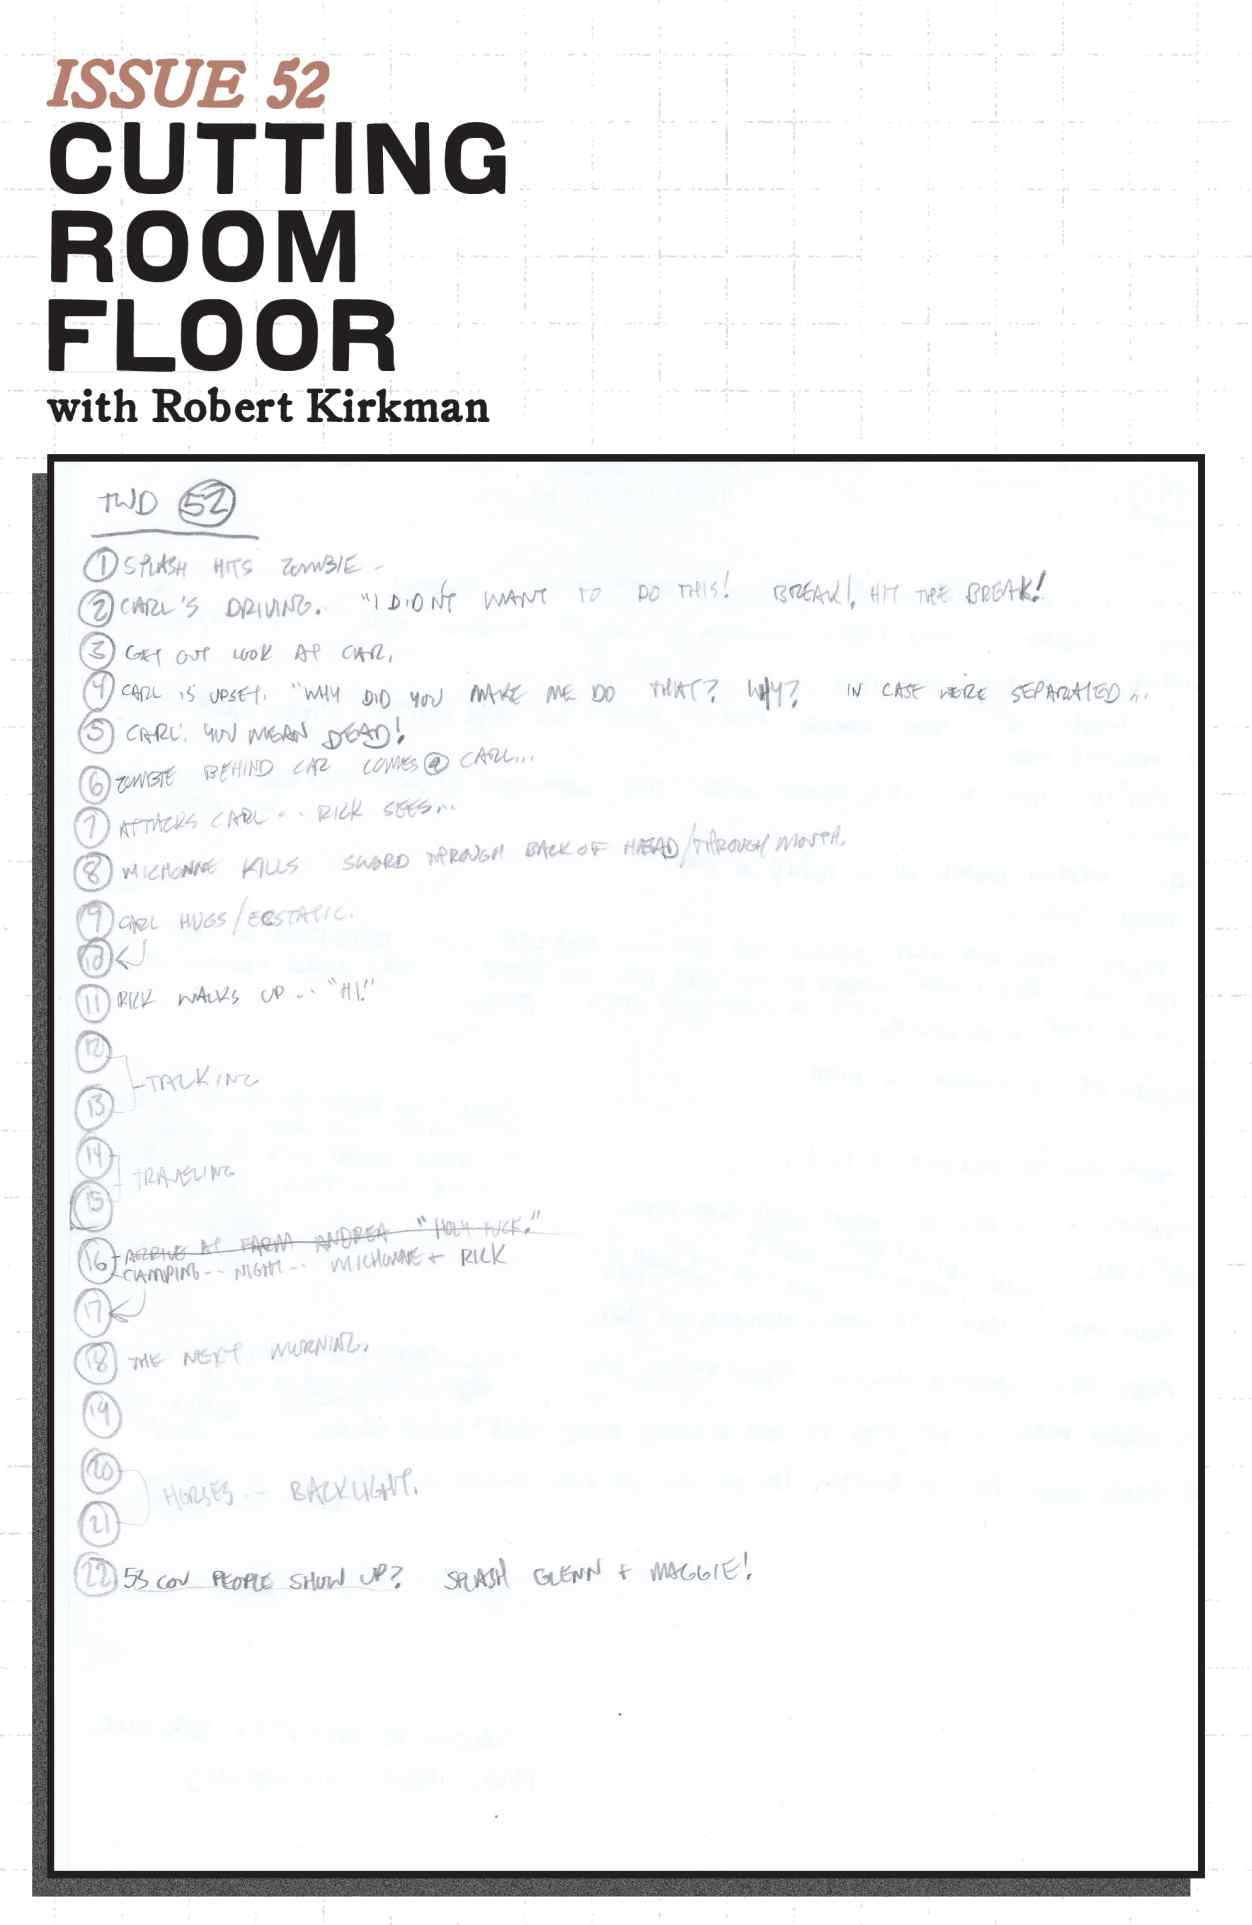 ISSUE 52
CUTTING
ROOM
FLOOR
with Robert Kirkman
TWD 52
1 SPLASH HITS ZOMBIE -
2 CARL'S DRIVING. "I DIDN'T WANT TO DO THIS! BREAK! HIT THE BREAK!
3 GET OUT LOOK AT CAR.
4 CARL IS UPSET. "WHY DID YOU MAKE ME DO THAT? WHY? IN CASE WE'RE SEPARATED...
5 CARL: YOU MEAN DEAD!
6 ZOMBIE BEHIND CAR COMES @ CARL...
7 ATTACKS CARL... RICK SEES...
8 MICHONNE KILLS SWORD THROUGH BACK OF HEAD/THROUGH MOUTH.
9 CARL HUGS/ECSTATIC.
10
11 RICK WALKS UP... "HI!"
12
TALKING
13
14
TRAVELING
15
16 ARRIVE AT FARM ANDREA "HOLY FUCK."
CAMPING... NIGHT... MICHONNE + RICK
17
18 THE NEXT MORNING.
19
20
HORSES... BACKLIGHT.
21
22 53 COV PEOPLE SHOW UP? SPLASH GLENN + MAGGIE!